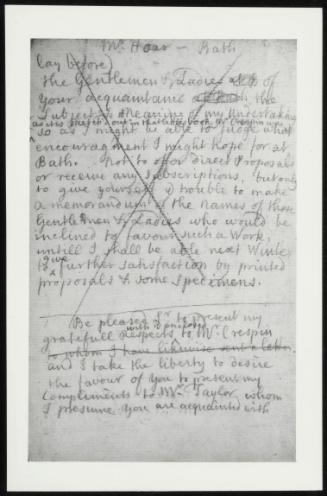 Mr Hoar — Bath
lay before
the Gentlemen & Ladies of
your acquaintance the
subject & Meaning of my Undertaking
as it is set out in the
so as I might be able to judge what
encouragment I might hope for at
Bath. Not to offer direct Proposals
or receive any subscriptions, but only
to give yourself trouble to make
a memorandum of the names of those
Gentlemen & Ladies who would be
inclined to favour such a Work,
untill I shall be able next Winter
to give further satisfaction by printed
proposals & some Specimens.
Be pleased Sr to present my
gratefull respects to Mr Crespin
to whom I have likewise sent a letter
and I take the liberty to desire
the favour of you to present my
compliments to Mr Taylor whom
I presume you are aquainted with